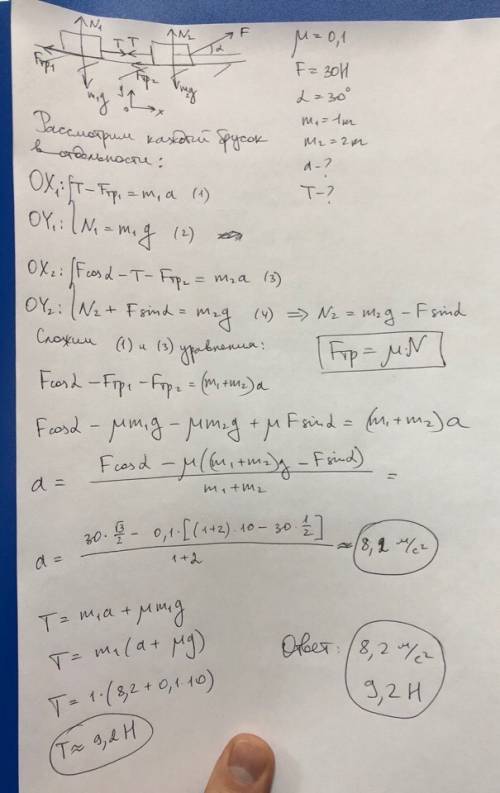 N₁ N₂ F
T T α
Fтр₁ Fтр₂
m₁g y m₂g
0 x
μ = 0,1
F = 30Н
α = 30°
m₁ = 1м
m₂ = 2м
a - ?
T - ?
Рассмотрим каждый брусок
в отдельности:
OX₁: { T - Fтр₁ = m₁a (1)
OY₁: { N₁ = m₁g (2)
OX₂: { Fcosα - T - Fтр₂ = m₂a (3)
OY₂: { N₂ + Fsinα = m₂g (4) ⇒ N₂ = m₂g - Fsinα
Сложим (1) и (3) уравнения:
Fтр = μN
Fcosα - Fтр₁ - Fтр₂ = (m₁+m₂)a
Fcosα - μm₁g - μm₂g + μFsinα = (m₁+m₂)a
a = (Fcosα - μ((m₁+m₂)g - Fsinα)) / (m₁+m₂) =
a = (30·√3/2 - 0,1·[(1+2)·10 - 30·1/2]) / (1+2) ≈ 8,2 м/с²
T = m₁a + μm₁g
T = m₁(a + μg)
T = 1·(8,2 + 0,1·10)
T ≈ 9,2Н
Ответ: 8,2 м/с²
9,2Н